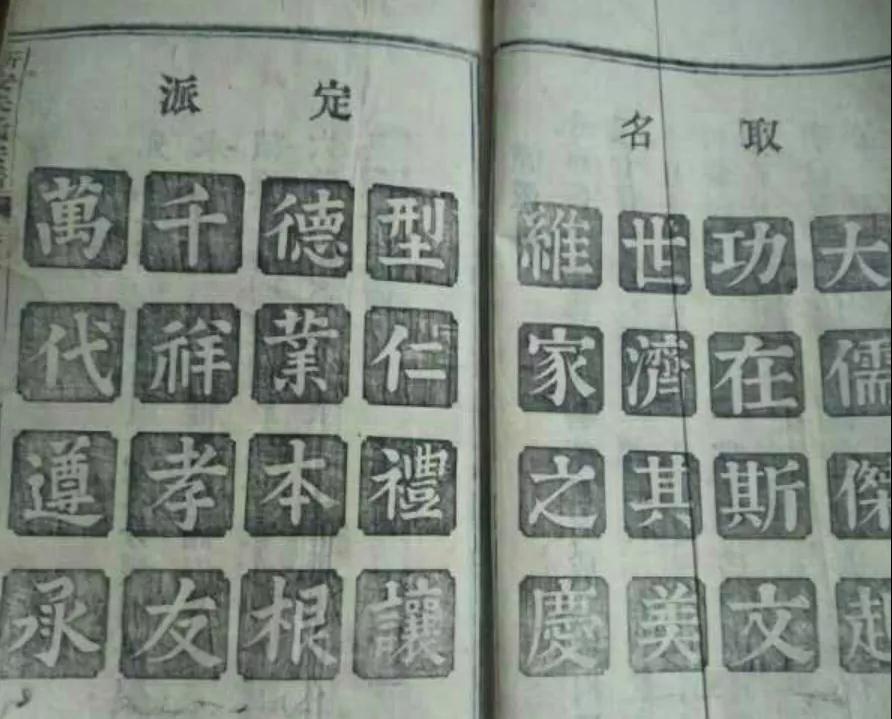 取名
大儒傑
功在斯文
世濟其美
維家之慶
定派
型仁禮讓
德業本根
千祥孝友
萬代遵承